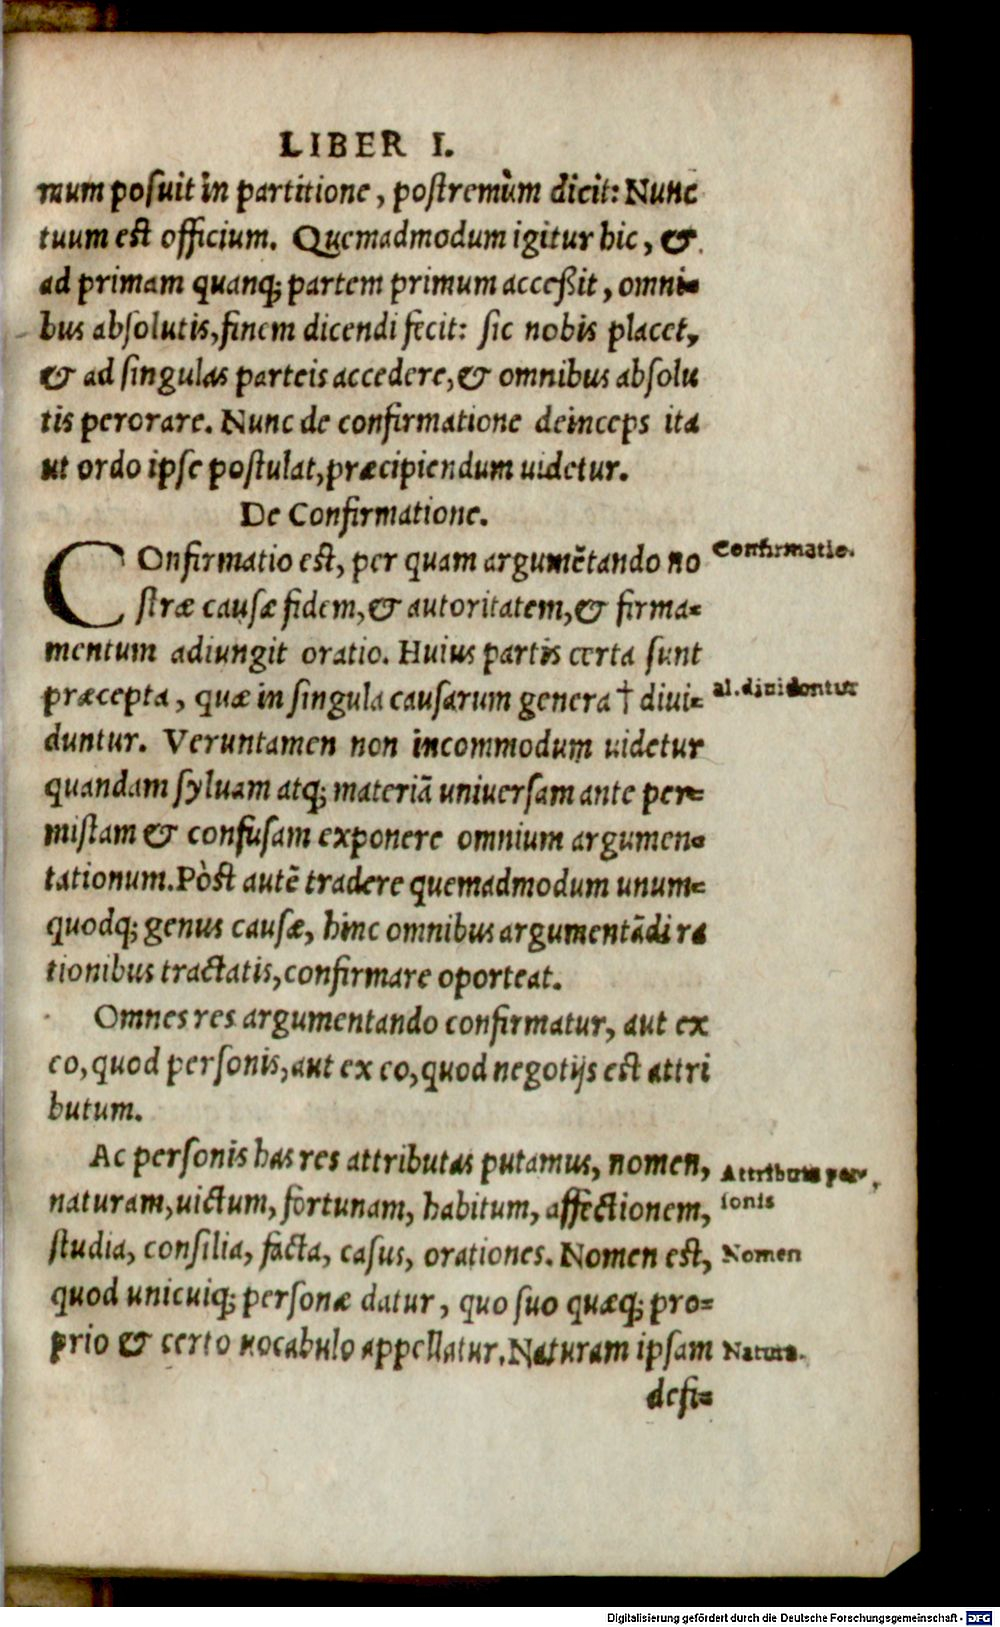 LIBER I.
mum posuit in partitione, postremùm dicit: Nunc
tuum est officium. Quemadmodum igitur hic, &
ad primam quanq; partem primum acceßit, omni=
bus absolutis, finem dicendi fecit: sic nobis placet,
& ad singulas parteis accedere, & omnibus absolu
tis perorare. Nunc de confirmatione deinceps ita
ut ordo ipse postulat, præcipiendum uidetur.
De Confirmatione.
COnfirmatio est, per quam argumẽtando no
Confirmatio.
stræ causæ fidem, & autoritatem, & firma=
mentum adiungit oratio. Huius partis certa sunt
præcepta, quæ in singula causarum genera † diui=
al. diuidontur
duntur. Veruntamen non incommodum uidetur
quandam syluam atq; materiã uniuersam ante per=
mistam & confusam exponere omnium argumen=
tationum. Pòst autẽ tradere quemadmodum unum=
quodq; genus causæ, hinc omnibus argumentãdi ra
tionibus tractatis, confirmare oporteat.
Omnes res argumentando confirmatur, aut ex
eo, quod personis, aut ex eo, quod negotijs est attri
butum.
Ac personis has res attributas putamus, nomen,
Attributa per=
naturam, uictum, fortunam, habitum, affectionem,
sonis
studia, consilia, facta, casus, orationes. Nomen est,
Nomen
quod unicuiq; personæ datur, quo suo quæq; pro=
prio & certo uocabulo appellatur. Naturam ipsam
Natura.
defi=
Digitalisierung gefördert durch die Deutsche Forschungsgemeinschaft - DFG